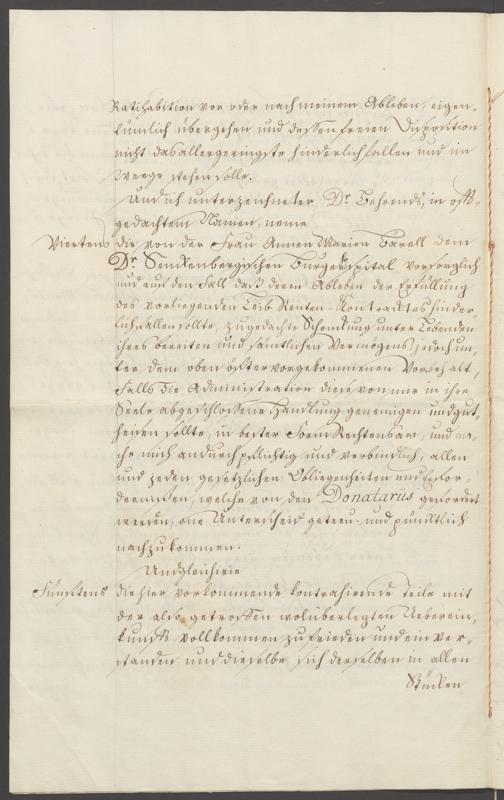 Ratihabition vor oder nach meinem Ableben, eigen-
tümlich übergehen und dessen freien Disposition
nicht das allergeringste hinderlich fallen und im
Weege stehen solle.
Und ich unterzeichneter Dr Behrends, in oft-
gedachtem Namen, neme
Viertens die von der Frau Annen Marien Barell dem
Dr Senckenbergischen Bürgerhospital vorsorglich
und auf den Fall daß deren Ableben der Erfüllung
des vorliegenden Leib-Renten-Kontracktes hinder-
lich fallen sollte, zugedachte Schenckung unter Lebenden
ihres bereiten und sämtlichen Vermögens, jedoch un-
ter dem oben öfter vorgekommenen Vorbehalt,
Falls die Administration diese von mir in ihre
Seele abgeschlossene Handlung genemigen und gut-
heisen sollte, in bester Form Rechtens an, und ma-
che mich andurch pflichtig und verbindlich, allen
und jeden gesetzlichen Obliegenheiten und Erfor-
dernissen, welche von dem Donatariis gefordert
werden, one Unterscheid getreu- und pünktlich
nachzukommen.
Und gleichwie
Fünftens die hier vorkommende kontrahirende Teile mit
der also getroffen wolüberlegten Ueberein-
kunft vollkommen zufrieden und einver-
standen und dieselbe sich derselben in allen
Stücken